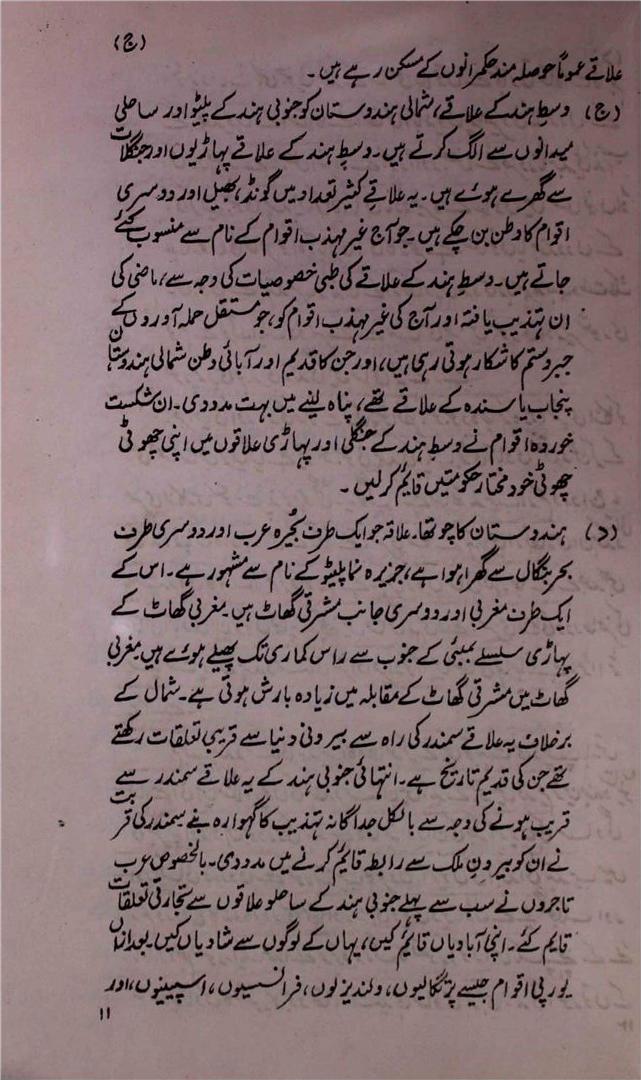 (ج)
علاقے عموماً حوصلہ مند حکمرانوں کے مسکن رہے ہیں۔
(ج) وسطِ ہند کے علاقے، شمالی ہندوستان کو جنوبی ہند کے پلیٹو اور ساحلی
میدانوں سے الگ کرتے ہیں۔ وسطِ ہند کے علاقے پہاڑیوں اور جنگلات
سے گھرے ہوئے ہیں۔ یہ علاقے کثیر تعداد میں گونڈ، بھیل اور دوسری
اقوام کا وطن بن چکے ہیں۔ جو آج غیر مہذب اقوام کے نام سے منسوب کئے
جاتے ہیں۔ وسطِ ہند کے علاقے کی طبی خصوصیات کی وجہ سے، ماضی کی
ان تہذیب یافتہ اور آج کی غیر مہذب اقوام کو، جو مستقل حملہ آوروں کے
جبر وستم کا شکار ہوتی رہی ہیں، اور جن کا قدیم اور آبائی وطن شمالی ہندوستان
پنجاب یا سندھ کے علاقے تھے، پناہ لینے میں بہت مدد دی۔ ان شکست
خوردہ اقوام نے وسطِ ہند کے جنگلی اور پہاڑی علاقوں میں اپنی چھوٹی
چھوٹی خود مختار حکومتیں قایم کر لیں۔
(د) ہندوستان کا چوتھا۔ علاقہ جو ایک طرف بحیرہ عرب اور دوسری طرف
بحر بنگال سے گھرا ہوا ہے، جزیرہ نما پلیٹو کے نام سے مشہور ہے۔ اس کے
ایک طرف مغربی اور دوسری جانب مشرقی گھاٹ ہیں۔ مغربی گھاٹ کے
پہاڑی سلسلے بمبئی کے جنوب سے راس کماری تک پھیلے ہوئے ہیں مغربی
گھاٹ میں مشرقی گھاٹ کے مقابلہ میں زیادہ بارش ہوتی ہے۔ شمال کے
برخلاف یہ علاقے سمندر کی راہ سے بیرونی دنیا سے قریبی تعلقات رکھتے
تھے جن کی قدیم تاریخ ہے۔ انتہائی جنوبی ہند کے یہ علاقے سمندر سے
قریب ہونے کی وجہ سے بالکل جداگانہ تہذیب کا گہوارہ بنے سمندر کی قربت
نے ان کو بیرونِ ملک سے رابطہ قایم کرنے میں مدد دی۔ بالخصوص عرب
تاجروں نے سب سے پہلے جنوبی ہند کے ساحلو علاقوں سے تجارتی تعلقات
قایم کئے۔ اپنی آبادیاں قایم کیں، یہاں کے لوگوں سے شادیاں کیں۔ بعد ازاں
یورپی اقوام جیسے پرتگالیوں، ولندیزلوں، فرانسسیوں، اسپینیوں، اور
۱۱